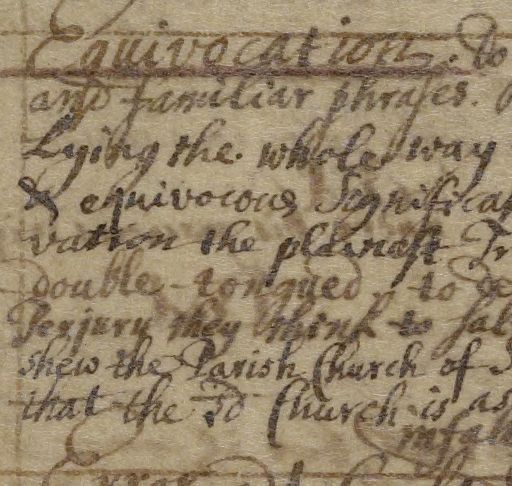 Equivocation. To
and familiar phrases.
Lying the whole way
& equivocous Significa
vation the plainest Tr
double-tongued, to de
Perjury they think to sal
shew the Parish Church of S
that the sd Church is as
infal